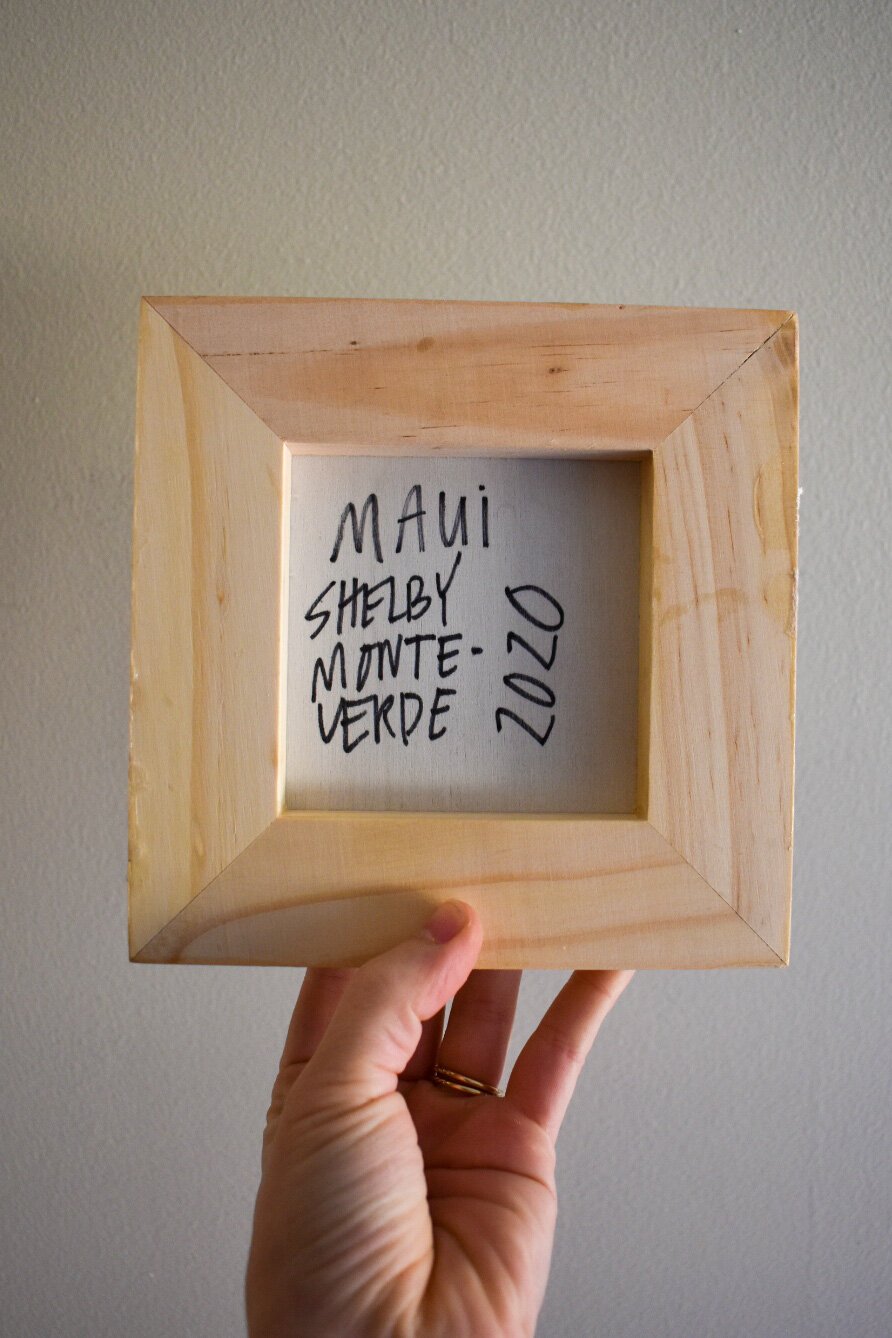 MAUi
SHELBY
MONTE-
VERDE
2020